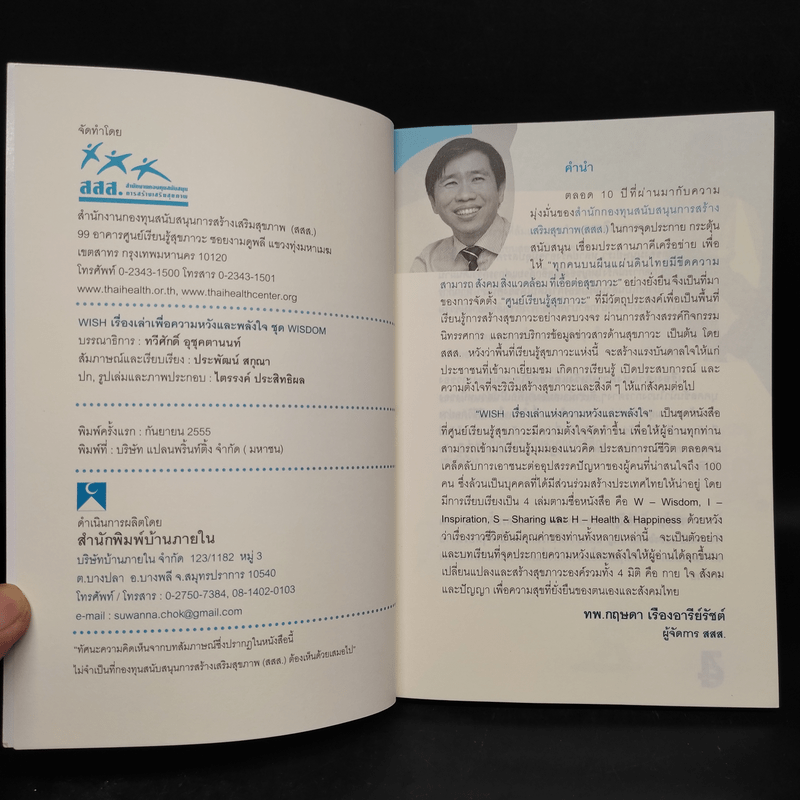 จัดทำโดย
สสส. สำนักงานกองทุนสนับสนุน
การสร้างเสริมสุขภาพ
สำนักงานกองทุนสนับสนุนการสร้างเสริมสุขภาพ (สสส.)
99 อาคารศูนย์เรียนรู้สุขภาวะ ซอยงามดูพลี แขวงทุ่งมหาเมฆ
เขตสาทร กรุงเทพมหานคร 10120
โทรศัพท์ 0-2343-1500 โทรสาร 0-2343-1501
www.thaihealth.or.th, www.thaihealthcenter.org
WISH เรื่องเล่าเพื่อความหวังและพลังใจ ชุด WISDOM
บรรณาธิการ : ทวีศักดิ์ อุชุคตานนท์
สัมภาษณ์และเรียบเรียง : ประพัฒน์ สกุณา
ปก, รูปเล่มและภาพประกอบ : ไตรรงค์ ประสิทธิผล
พิมพ์ครั้งแรก : กันยายน 2555
พิมพ์ที่ : บริษัท แปลนพริ้นท์ติ้ง จำกัด ( มหาชน)
ดำเนินการผลิตโดย
สำนักพิมพ์บ้านภายใน
บริษัทบ้านภายใน จำกัด 123/1182 หมู่ 3
ต.บางปลา อ.บางพลี จ.สมุทรปราการ 10540
โทรศัพท์ / โทรสาร : 0-2750-7384, 08-1402-0103
e-mail : suwanna.chok@gmail.com
"ทัศนะความคิดเห็นจากบทสัมภาษณ์ซึ่งปรากฏในหนังสือนี้
ไม่จำเป็นที่กองทุนสนับสนุนการสร้างเสริมสุขภาพ (สสส.) ต้องเห็นด้วยเสมอไป"
คำนำ
ตลอด 10 ปีที่ผ่านมากับความ
มุ่งมั่นของสำนักกองทุนสนับสนุนการสร้าง
เสริมสุขภาพ(สสส.) ในการจุดประกาย กระตุ้น
สนับสนุน เชื่อมประสานภาคีเครือข่าย เพื่อ
ให้ "ทุกคนบนผืนแผ่นดินไทยมีขีดความ
สามารถ สังคม สิ่งแวดล้อม ที่เอื้อต่อสุขภาวะ" อย่างยั่งยืน จึงเป็นที่มา
ของการจัดตั้ง "ศูนย์เรียนรู้สุขภาวะ" ที่มีวัตถุประสงค์เพื่อเป็นพื้นที่
เรียนรู้การสร้างสุขภาวะอย่างครบวงจร ผ่านการสร้างสรรค์กิจกรรม
นิทรรศการ และการบริการข้อมูลข่าวสารด้านสุขภาวะ เป็นต้น โดย
สสส. หวังว่าพื้นที่เรียนรู้สุขภาวะแห่งนี้ จะสร้างแรงบันดาลใจให้แก่
ประชาชนที่เข้ามาเยี่ยมชม เกิดการเรียนรู้ เปิดประสบการณ์ และ
ความตั้งใจที่จะริเริ่มสร้างสุขภาวะและสิ่งดี ๆ ให้แก่สังคมต่อไป
"WISH เรื่องเล่าแห่งความหวังและพลังใจ" เป็นชุดหนังสือ
ที่ศูนย์เรียนรู้สุขภาวะมีความตั้งใจจัดทำขึ้น เพื่อให้ผู้อ่านทุกท่าน
สามารถเข้ามาเรียนรู้มุมมองแนวคิด ประสบการณ์ชีวิต ตลอดจน
เคล็ดลับการเอาชนะต่ออุปสรรคปัญหาของผู้คนที่น่าสนใจถึง 100
คน ซึ่งล้วนเป็นบุคคลที่ได้มีส่วนร่วมสร้างประเทศไทยให้น่าอยู่ โดย
มีการเรียบเรียงเป็น 4 เล่มตามชื่อหนังสือ คือ W – Wisdom, I –
Inspiration, S – Sharing และ H – Health & Happiness ด้วยหวัง
ว่าเรื่องราวชีวิตอันมีคุณค่าของท่านทั้งหลายเหล่านี้ จะเป็นตัวอย่าง
และบทเรียนที่จุดประกายความหวังและพลังใจให้ผู้อ่านได้ลุกขึ้นมา
เปลี่ยนแปลงและสร้างสุขภาวะองค์รวมทั้ง 4 มิติ คือ กาย ใจ สังคม
และปัญญา เพื่อความสุขที่ยั่งยืนของตนเองและสังคมไทย
ทพ.กฤษดา เรืองอารีย์รัชต์
ผู้จัดการ สสส.